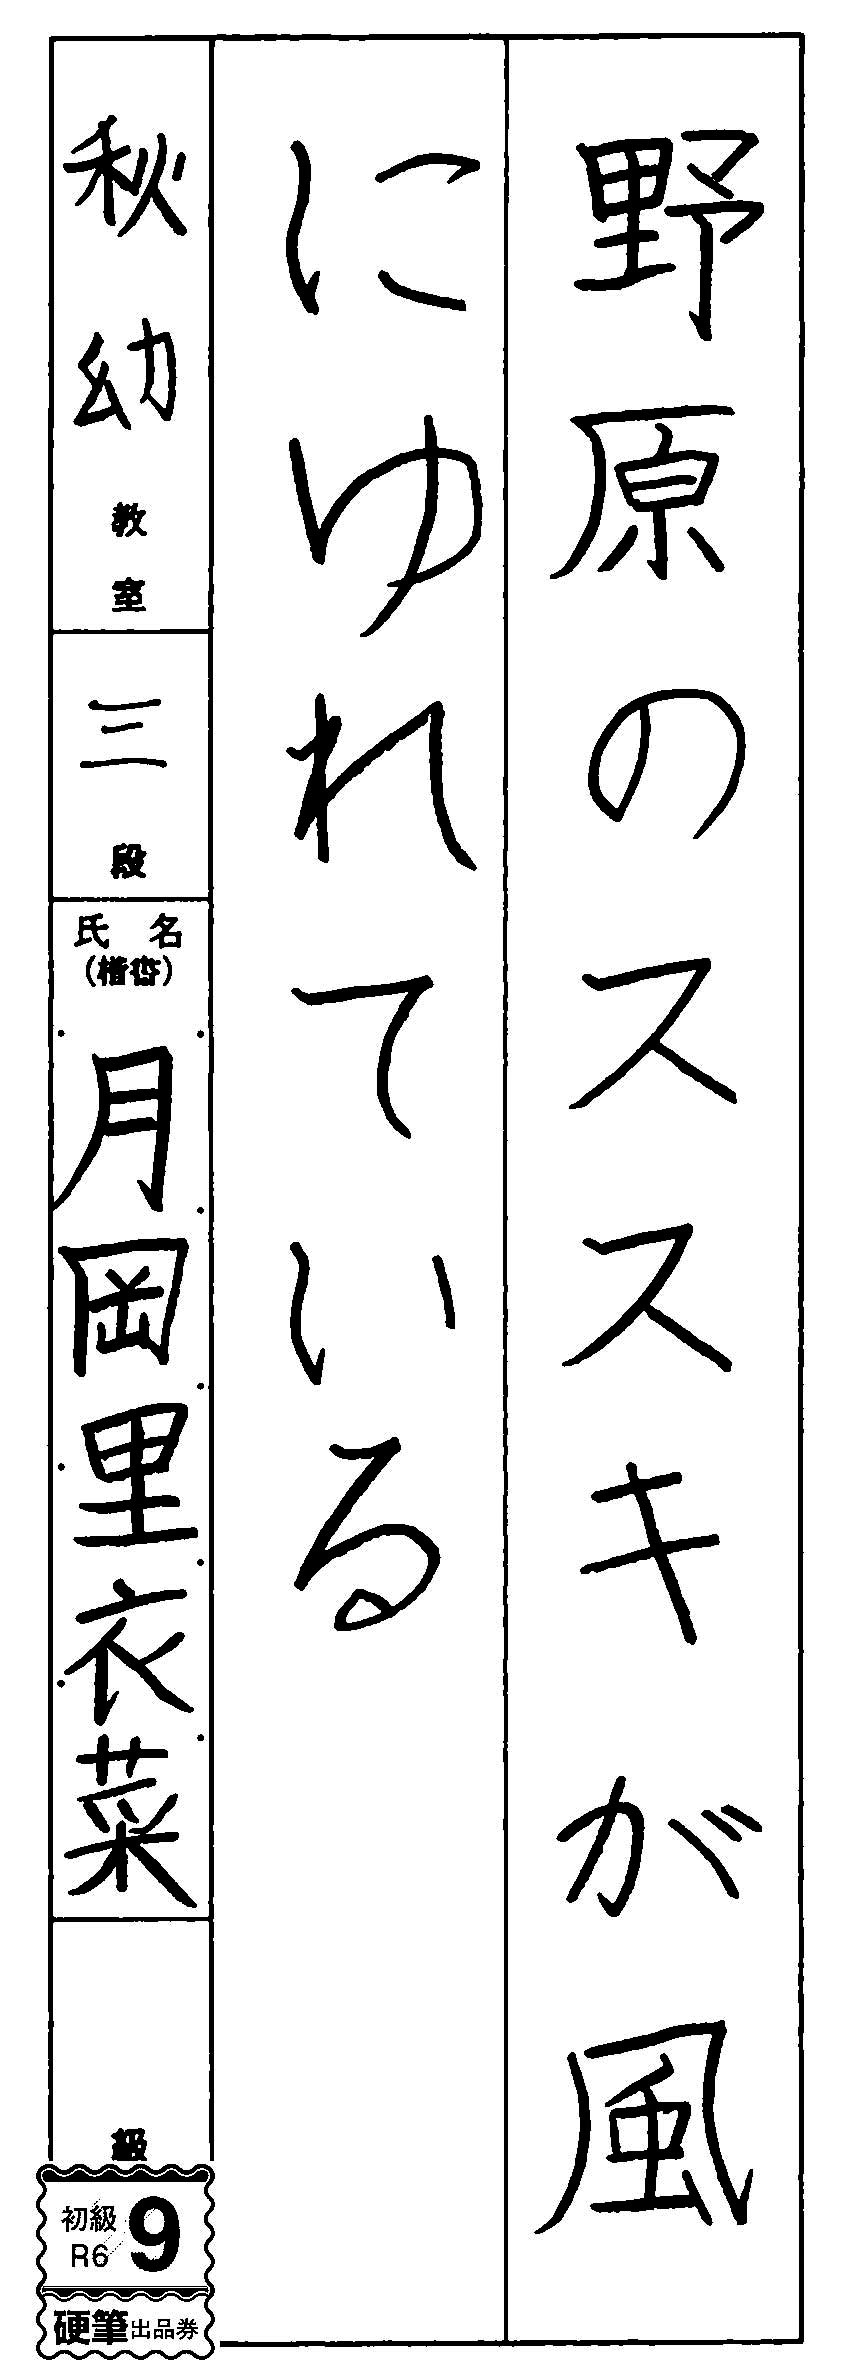 野原のススキが風
にゆれている
秋幼教室
三段
氏名
(楷書)
月岡里衣菜
級
初級
R6
9
硬筆出品券